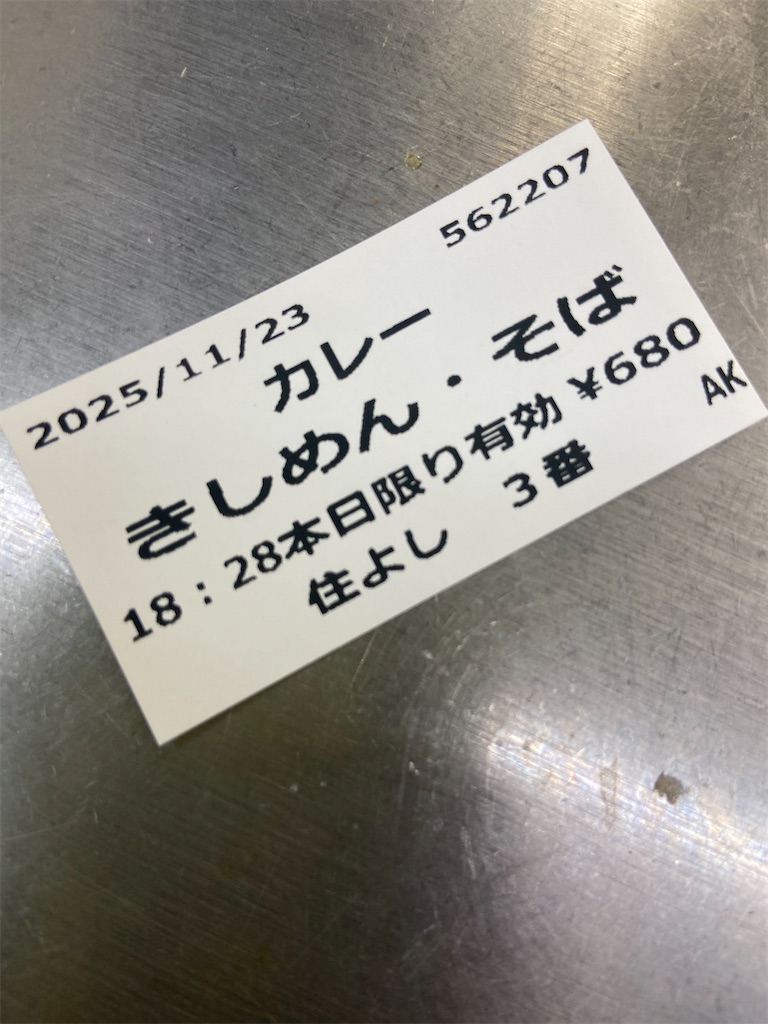 562207
2025/11/23
カレー
きしめん・そば
18：28本日限り有効 ¥680
住よし　3番 AK